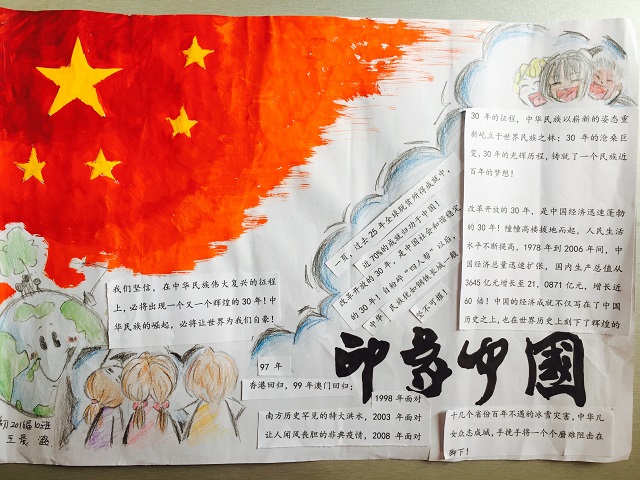 30 年的征程，中华民族以崭新的姿态重
新屹立于世界民族之林；30 年的沧桑巨
变，30 年的光辉历程，铸就了一个民族近
百年的梦想！
改革开放的 30 年，是中国经济迅速蓬勃
的 30 年！幢幢高楼拔地而起，人民生活
水平不断提高，1978 年到 2006 年间，中
国经济总量迅速扩张，国内生产总值从
3645 亿元增长至 21，0871 亿元，增长近
60 倍！中国的经济成就不仅写在了中国
历史之上，也在世界历史上刻下了辉煌的
一页，过去 25 年全球脱贫所得成就中，
近 70%的成就归功于中国！
改革开放的 30 年，是中国社会和谐稳定
的 30 年！自粉碎“四人帮”以后，
中华民族犹如钢铁长城一般
坚不可摧！
我们坚信，在中华民族伟大复兴的征程
上，必将出现一个又一个辉煌的 30 年！中
华民族的崛起，必将让世界为我们自豪！
印象中国
97 年
香港回归，99 年澳门回归；
1998 年面对
南方历史罕见的特大洪水，2003 年面对
让人闻风丧胆的非典疫情，2008 年面对
十几个省份百年不遇的冰雪灾害，中华儿
女众志成城，手挽手将一个个磨难阻击在
脚下！
初2018届10班